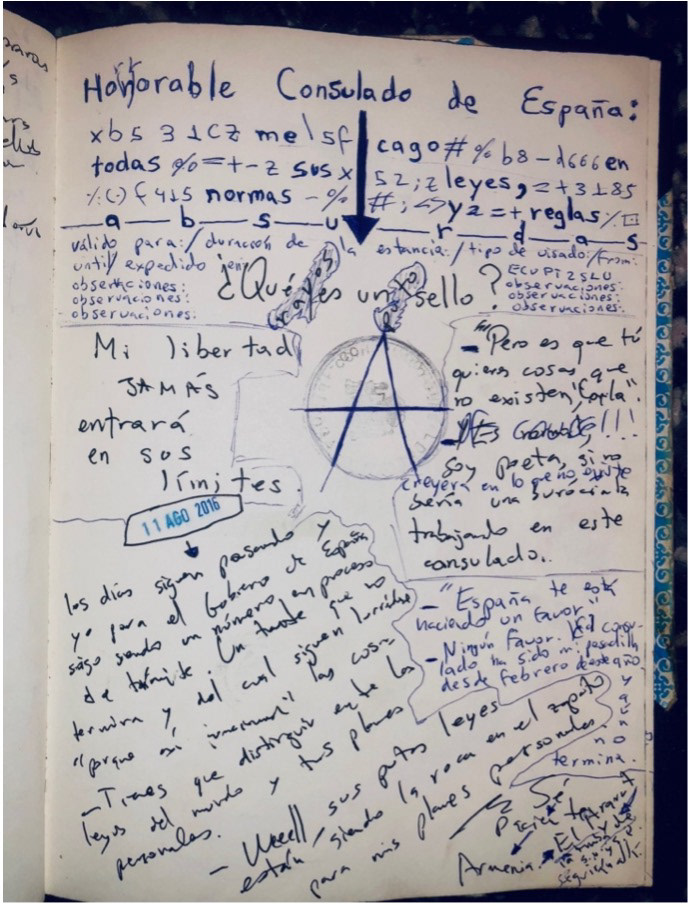 Honorable Consulado de España:
xb5 31CZ me\sf cago#%b8-d666en
todas %=+-z sus x 52;z leyes, =+3185
%(-)f415 normas -% #;<>yz=+reglas%□
a-b-s-u-r-d-a-s
válido para:/duración de la estancia:/tipo de visado:/from:
until/expedido en:
observaciones:
observaciones:
observaciones:
¿Qué rayos es un puto sello?
ECUPI2SLU
observaciones:
observaciones:
observaciones:
Mi libertad
JAMÁS
entrará
en sus
límites
11 AGO 2016
- "Pero es que tú
quieres cosas que
no existen, Carla".
soy poeta, si no
creyera en lo que no existe
sería una burócrata
trabajando en este
consulado.
los días siguen pasando y
yo para el Gobierno de España
sigo siendo un número, en proceso
de trámite. Un que no
termina y del cual siguen
"porque sí las cosas
- Tienes que distinguir entre las
leyes del mundo y tus planes
personales.
- Weeell sus putas leyes
están siendo la roca en el zapato
para mis planes personales
- "España te está
haciendo un favor."
- Ningún favor. El consu-
lado ha sido mi pesadilla
desde febrero de este año
y aún
no
termina.
Sé
paciente
El Ararat
Armenia.